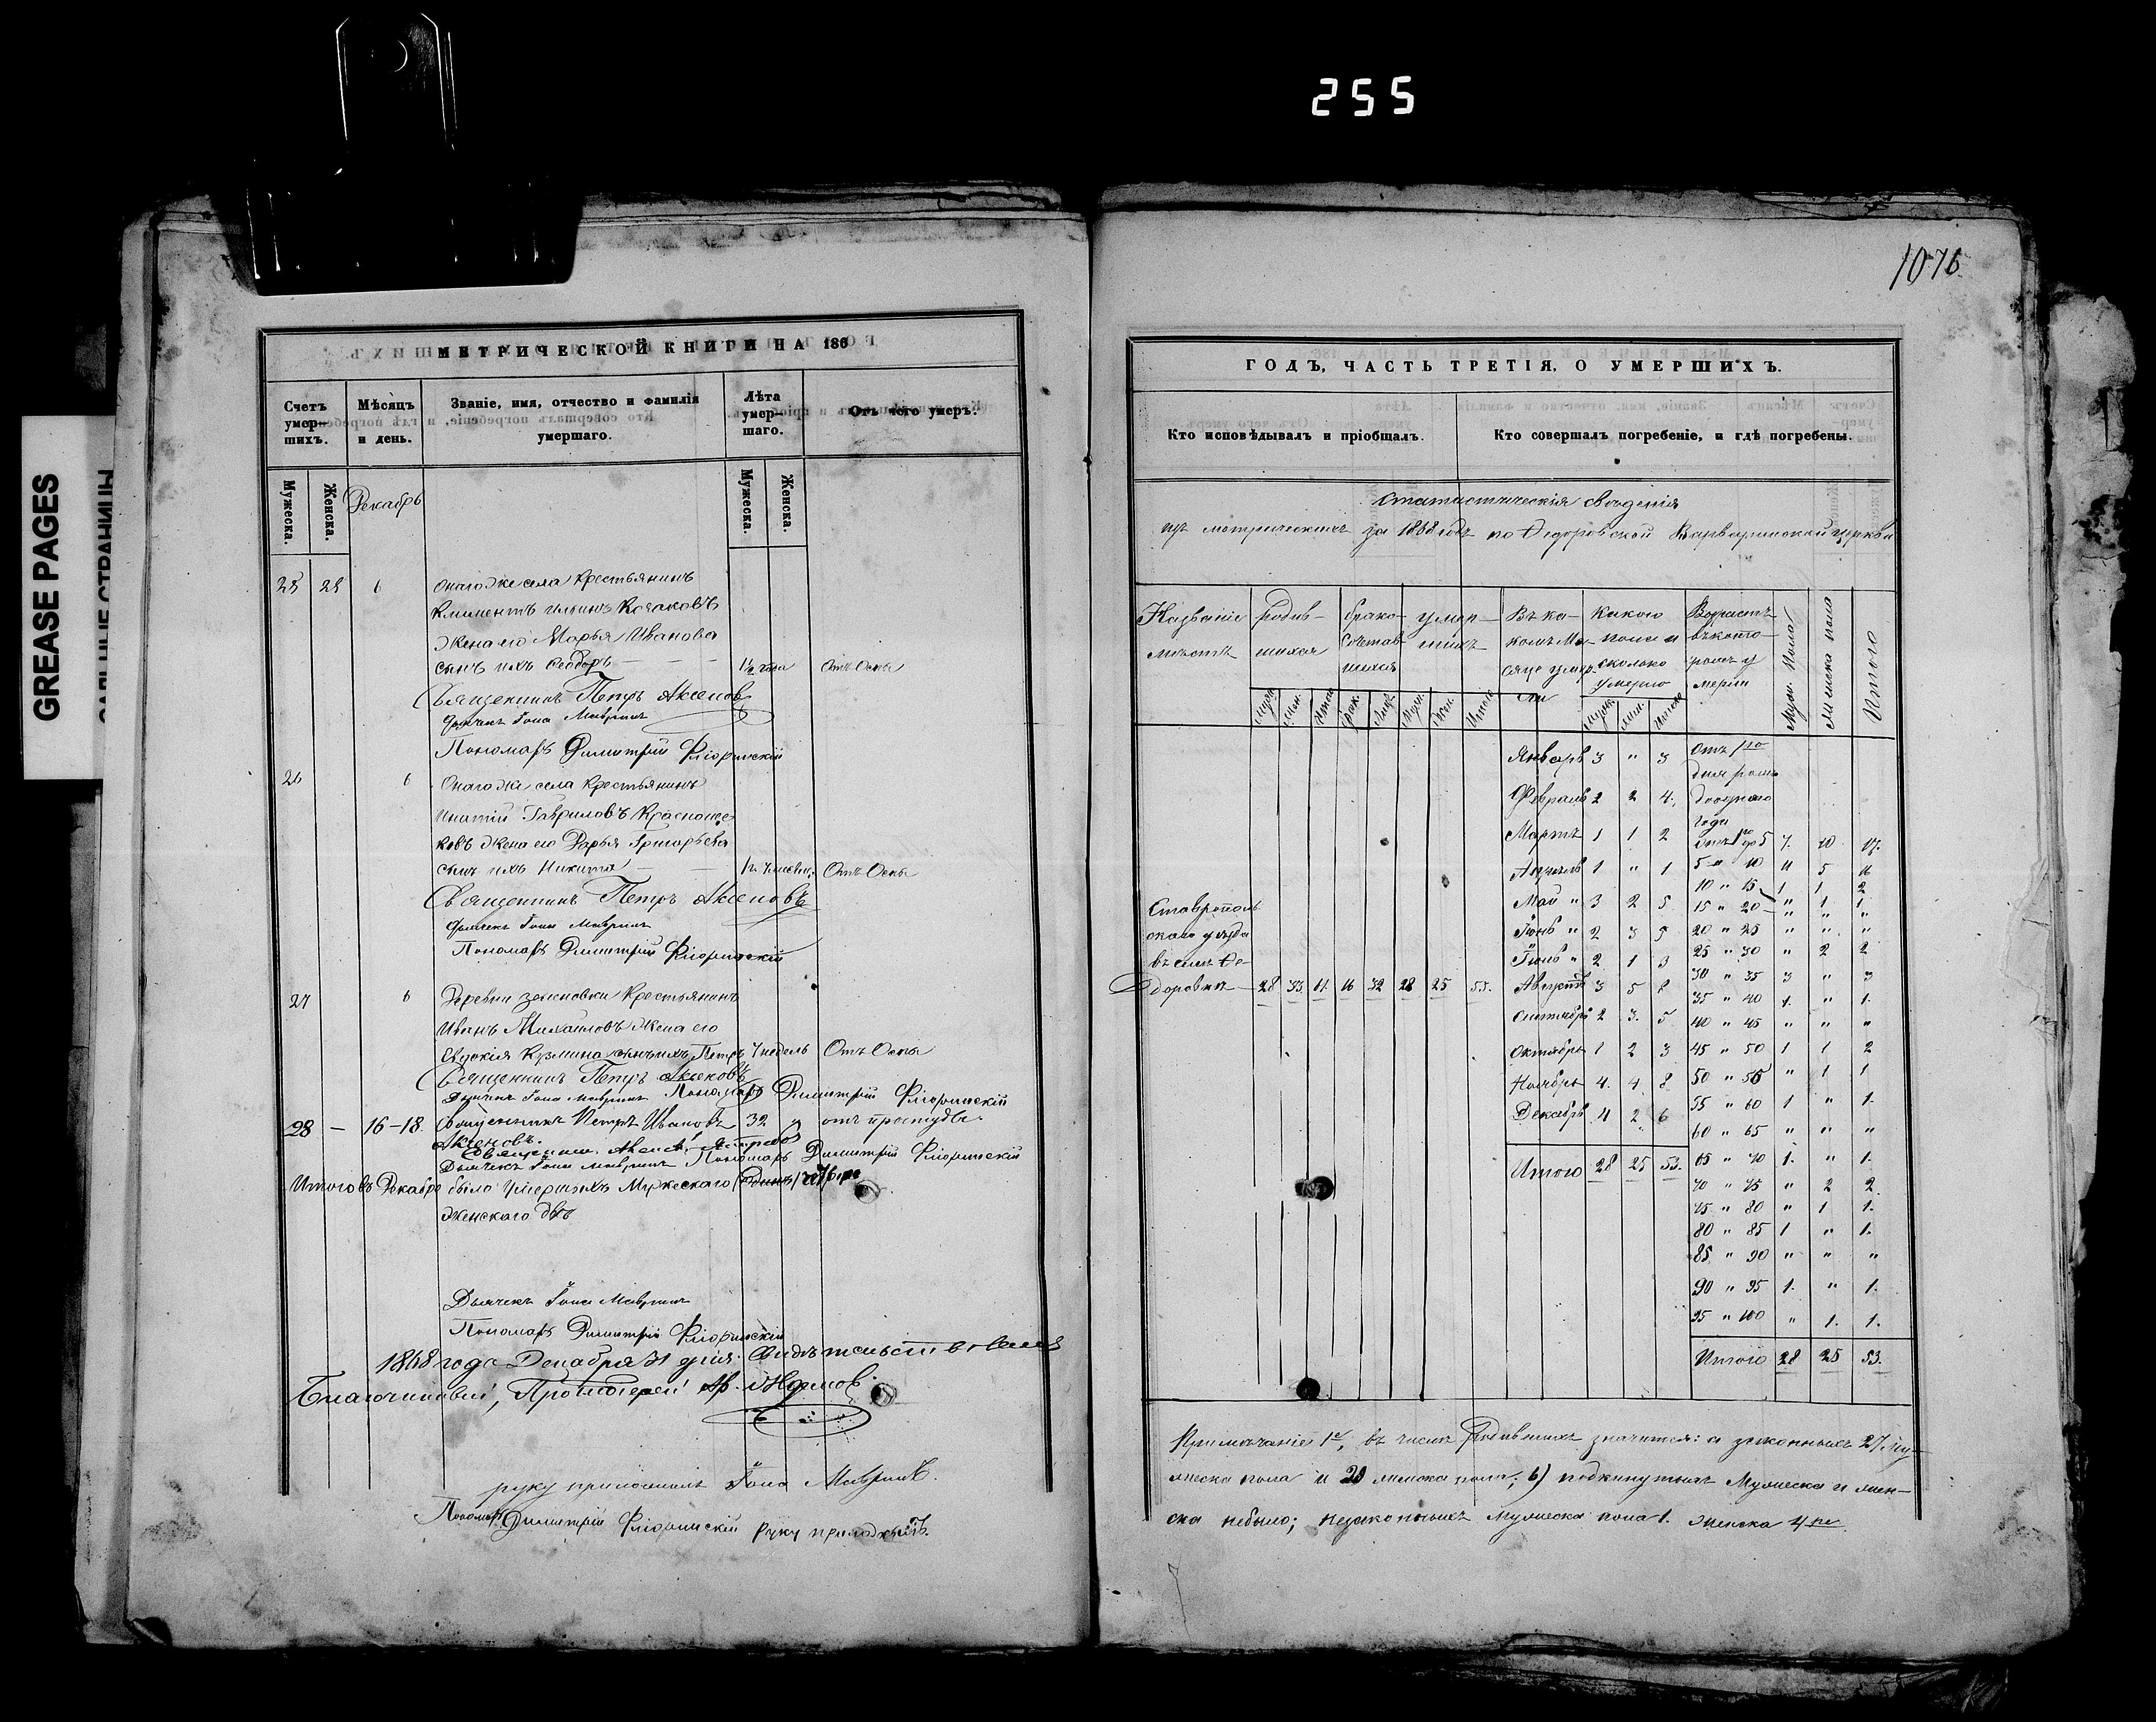 255
1076
GREASE PAGES
МЕТРИЧЕСКОЙ КНИГИ НА 186
Счетъ умер-шихъ.
Мѣсяцъ и день.
Званіе, имя, отчество и фамилія умершаго.
Лѣта умер-шаго.
Отъ чего умеръ.
Мужеска.
Женска.
Декабрь
Мужеска.
Женска.
25 6 Онагоже села Крестьянинъ
Климентъ Ильинъ Козаковъ
Жена его Марья Иванова
сынъ ихъ Феодоръ 1½ года Отъ Оспы
Священникъ Петръ Аксеновъ
Дьячекъ Іона Мавринъ
Пономарь Димитрій Флоринскій
26 6 Онагоже села Крестьянинъ
Гавриловъ Красноще
ковъ жена его Дарья Григорьева
сынъ ихъ Никита Отъ Оспы
Священникъ Петръ Аксеновъ
Дьячекъ Іона Мавринъ
Пономарь Димитрій Флоринскій
27 6 Деревни Крестьянинъ
Иванъ Михайловъ Жена его
Евдокія Кузмина сынъ ихъ Петръ 7 недель Отъ Оспы
Священникъ Петръ Аксеновъ
Дьячекъ Іона Мавринъ Пономарь Димитрій Флоринскій
28 — 16-18. Священникъ Петръ Ивановъ 32 отъ простуды
Аксеновъ.
Дьячекъ Іона Мавринъ Пономарь Димитрій Флоринскій
Итого въ Декабре было Умершихъ Мужескаго
Женскаго два
Дьячекъ Іона Мавринъ
Пономарь Димитрій Флоринскій
1868 года Декабря 31 дня. Свидѣтельствовалъ
Благочинный, Протоіерей
руку приложилъ Іона Мавринъ.
Пономарь Димитрій Флоринскій руку приложилъ.
ГОДЪ, ЧАСТЬ ТРЕТІЯ, О УМЕРШИХЪ.
Кто исповѣдывалъ и пріобщалъ.
Кто совершалъ погребеніе, и гдѣ погребены.
Статистическія свѣденія
изъ метрическихъ за 1868 годъ по Федоровской Варваринской церкви
Названіе мѣстъ
Родив-шихся
Брако-сочетав-шихся
умер-шихъ
Въ ка-комъ Ме-сяце умер-ли
Какого пола и сколько умерло
Возрастъ въ кото-ромъ у мерли
Муж. пола
Женска пола
Итого
Январь 3 " 3
Февраль 2 2 4.
Мартъ 1 1 2
Апрѣль 1 " 1
Май " 3 2 5
Іюнь " 2 3 5
Іюль " 2 1 3
Августъ 3 5 8
Сентябрь 2 3. 5
Октябрь 1 2 3
Ноябрь 4. 4 8
Декабрь 4 2 6
Итого 28 25 53.
Ставрополь
скаго уѣзда
въ селе Ѳе-
доровке 28 33 61. 16 32 28 25 53.
Отъ 1го
дня рож.
до одного
года
отъ 1го до 5 7. 10. 17.
5 " 10 11 5 16
10 " 15 1 1 2
15 " 20 " 1 1
20 " 25 " " "
25 " 30 " 2 2
30 " 35 3 " 3
35 " 40 1. " 1.
40 " 45 " " "
45 " 50 1 1 2
50 " 55 " 1 1
55 " 60 1 " 1.
60 " 65 " " "
65 " 70 1. " 1.
70 " 75 " 2 2.
75 " 80 " 1 1.
80 " 85 1 " 1.
85 " 90 " " "
90 " 95 1. " 1.
95 " 100 " 1. 1.
Итого 28 25 53.
Примѣчаніе 1е, въ числѣ Родившихъ значится: а законныхъ 27 му-
жеска пола и 29 женска пола; б) подкинутыхъ Мужеска и жен-
ска небыло; незаконныхъ мужеска пола 1. женска 4ре.